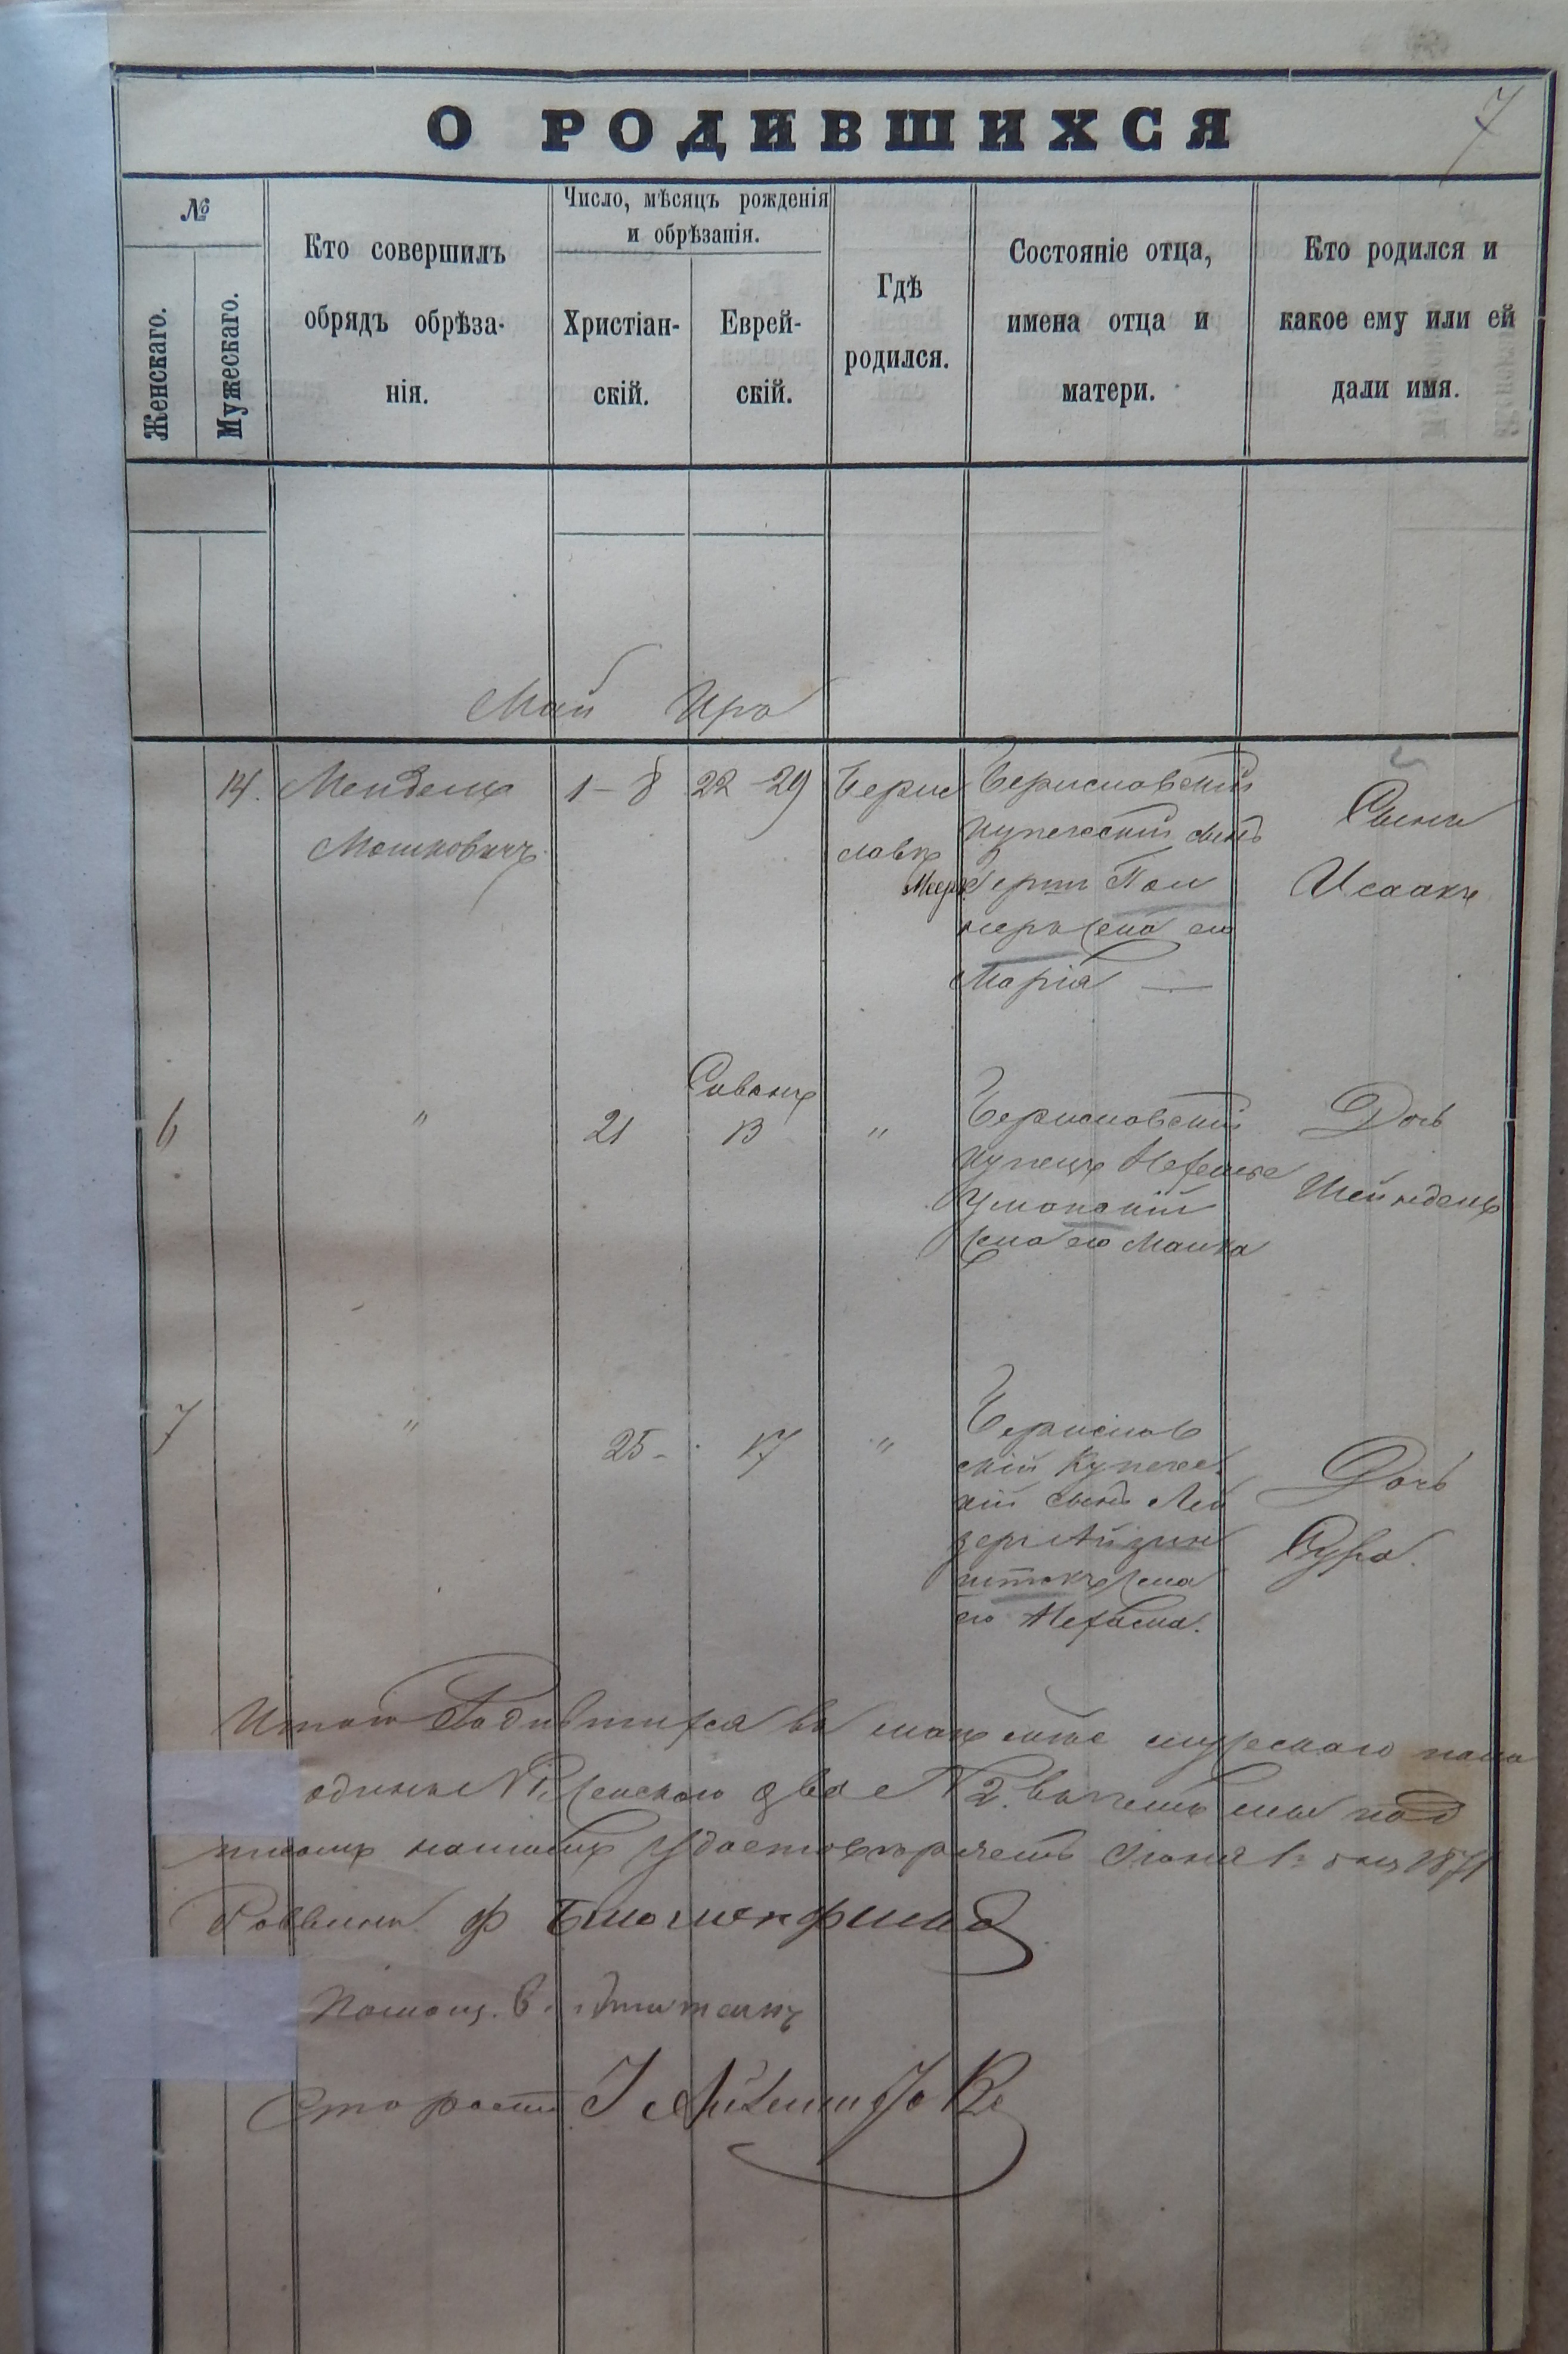 7
О РОДИВШИХСЯ
№
Женскаго.
Мужескаго.
Кто совершилъ
обрядъ обрѣза-
нія.
Число, мѣсяцъ рожденія
и обрѣзанія.
Христіан-
скій.
Еврей-
скій.
Гдѣ
родился.
Состояніе отца,
имена отца и
матери.
Кто родился и
какое ему или ей
дали имя.
Май Иро
14.
Мендель
Мошковичъ
1 – 8
22 – 29
Берис
лавъ
Бериславскій
купеческій сынъ
Меер Берш Пол
жена его
Марія —
Сынъ
Исаакъ
6
"
21
Сиванъ
13
"
Бериславскій
Купецъ
Уманскій
жена его Малка
Дочь
Шейндель
7
"
25 –
17
"
Берислав
скій Купечес
кій сынъ Лей
зеръ Айзин
штокъ жена
его Нехама.
Дочь
Сура.
Итого Родившихся въ маѣ м-цѣ мужескаго пола
одинъ № 1, женскаго двое № 2. въ чемъ мы под
писомъ нашимъ Удостовѣряемъ Іюня 1 дня 1871
Раввинъ Ф Блюменфельдъ
Помощ.
Староста І Айзенштокъ